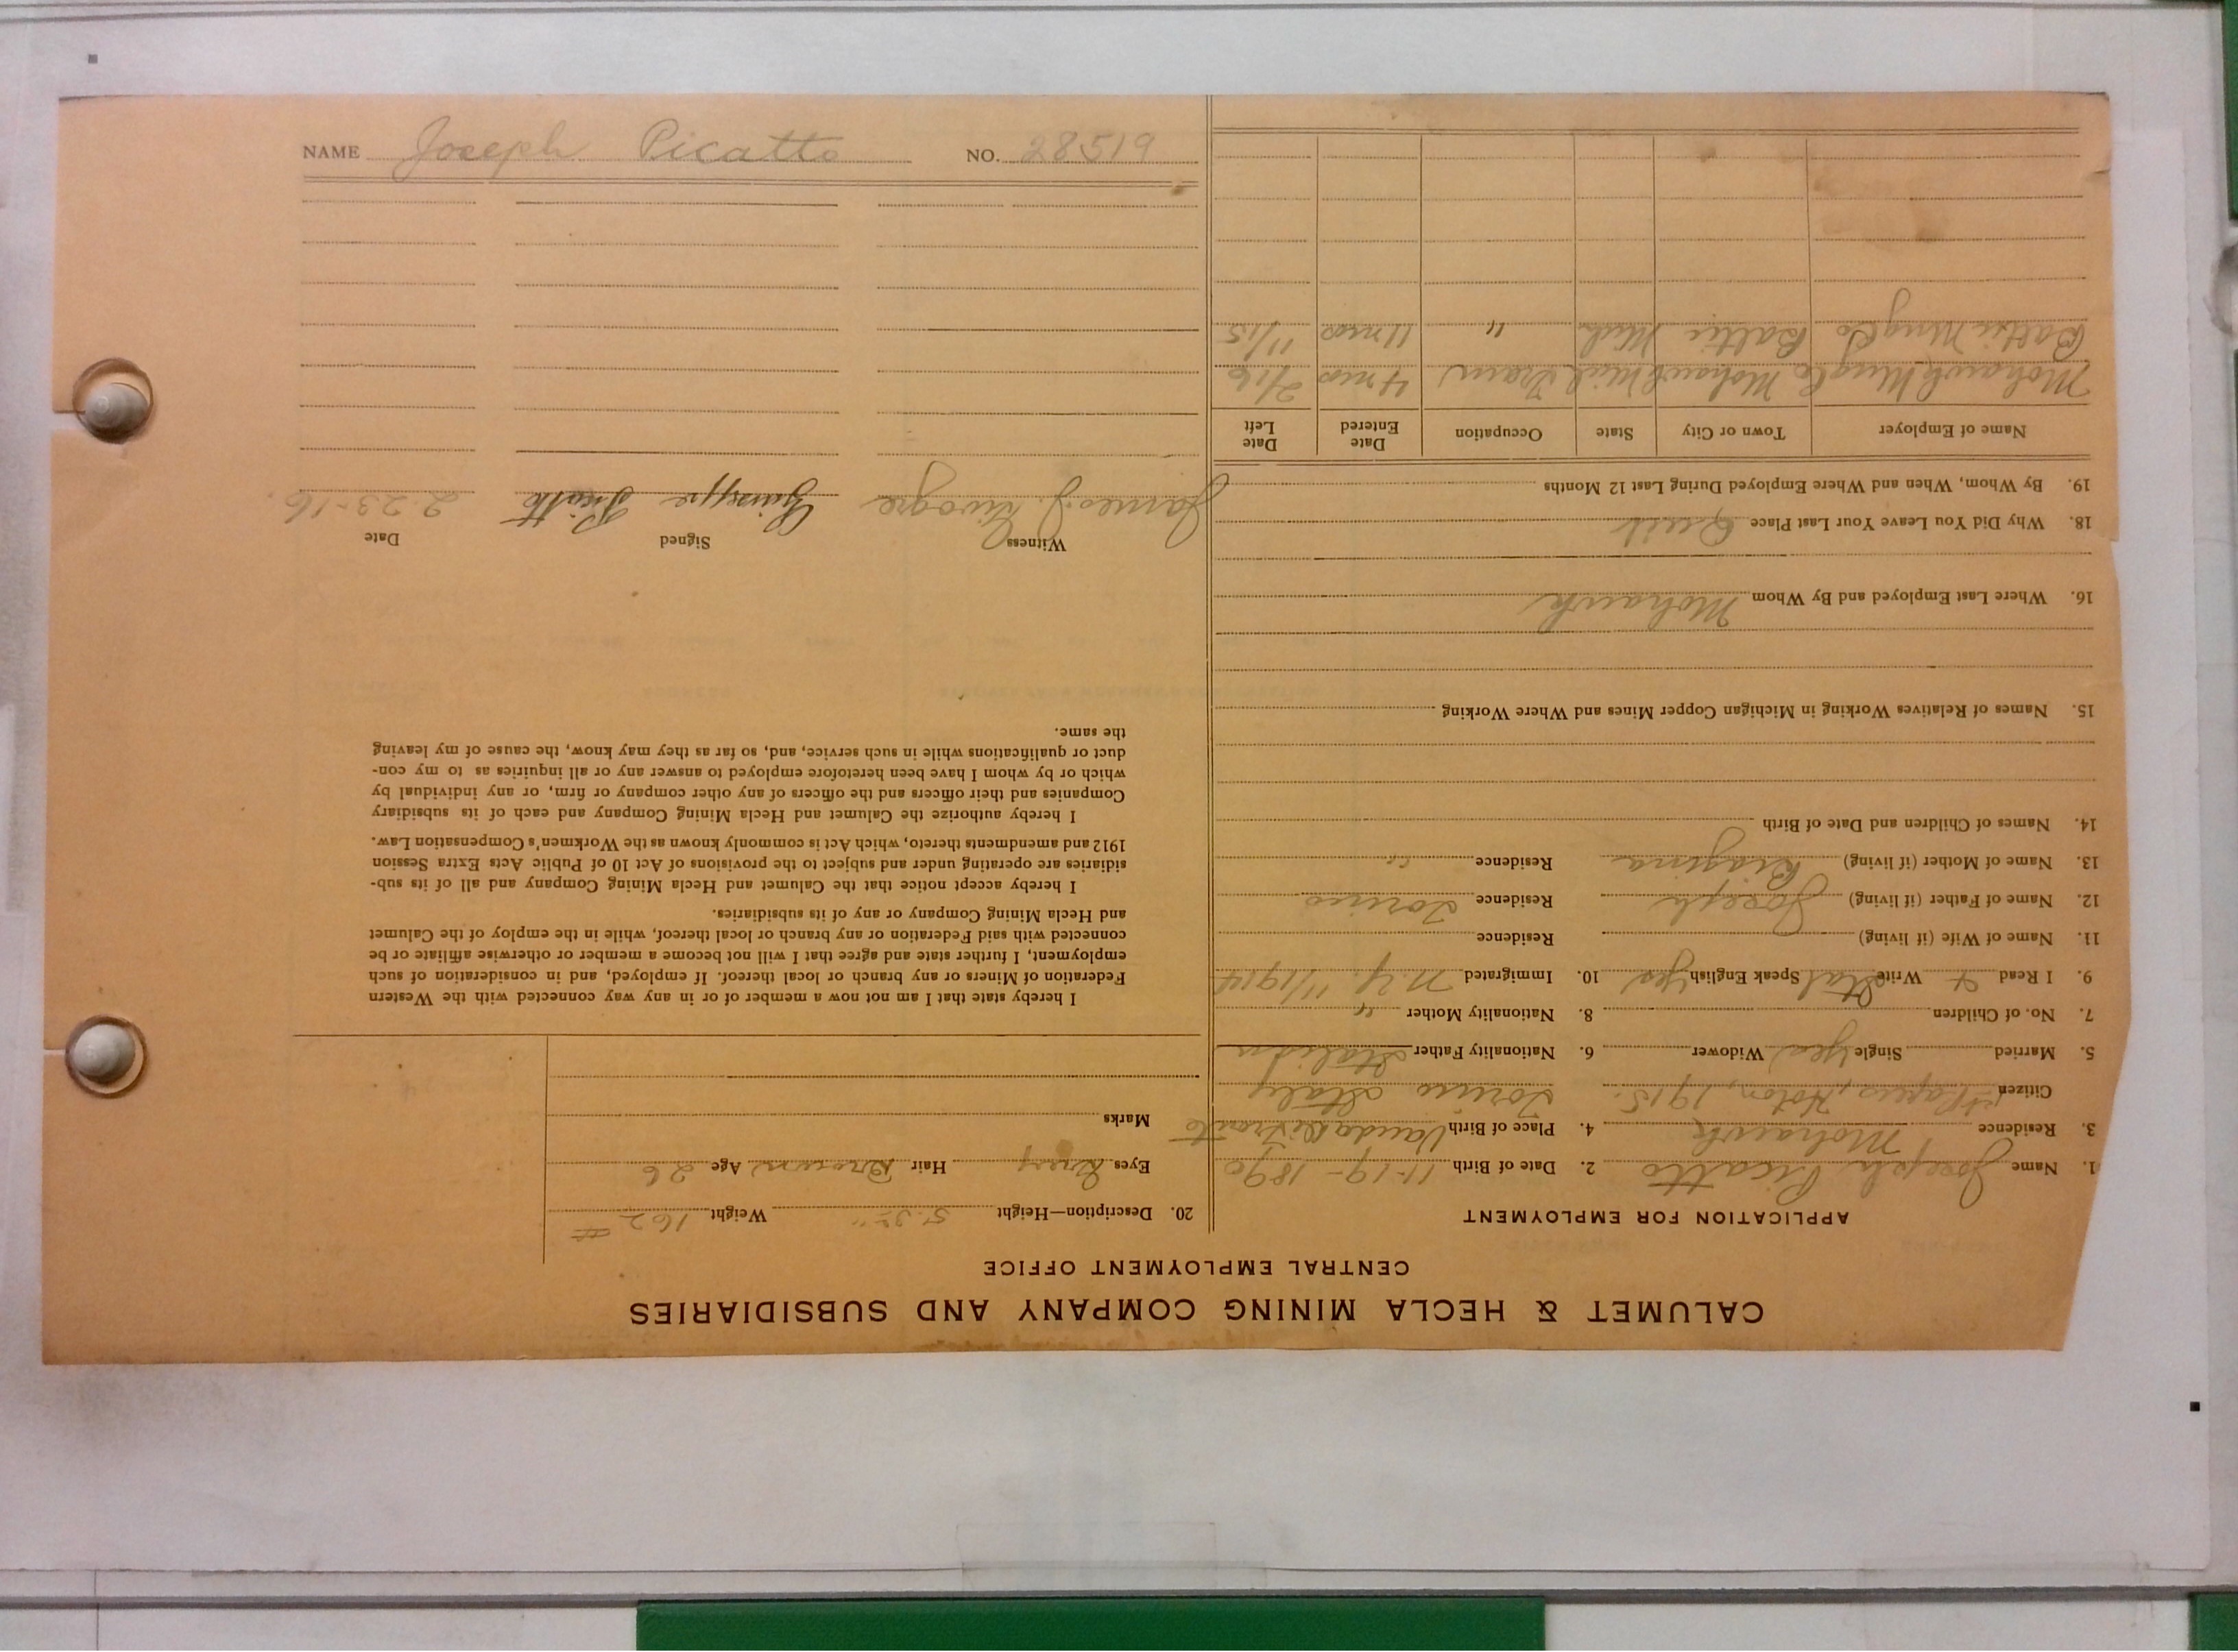 NAME Joseph Picatto NO. 28519
CALUMET & HECLA MINING COMPANY AND SUBSIDIARIES
CENTRAL EMPLOYMENT OFFICE
APPLICATION FOR EMPLOYMENT
1. Name Joseph Picatto 2. Date of Birth 11-19-1890
3. Residence Mohawk 4. Place of Birth
Citizen 1st Papers, Hoton, 1915. Torino Italy
5. Married Single Yes Widower 6. Nationality Father Italian
7. No. of Children 8. Nationality Mother "
9. I Read + Write Ital Speak English Yes 10. Immigrated N.Y. 11/1914
11. Name of Wife (if living) Residence
12. Name of Father (if living) Joseph Residence Torino
13. Name of Mother (if living) Residence "
14. Names of Children and Date of Birth
15. Names of Relatives Working in Michigan Copper Mines and Where Working
16. Where Last Employed and By Whom Mohawk
18. Why Did You Leave Your Last Place Quit
19. By Whom, When and Where Employed During Last 12 Months
Name of Employer Town or City State Occupation Date Entered Date Left
Mohawk Mng Co Mohawk Mich Tram 4 mos 2/16
Baltic Mng Co Baltic Mich " 11 mos 11/15
20. Description—Height 5' 3½" Weight 162 #
Eyes Grey Hair Brown Age 26
Marks
I hereby state that I am not now a member of or in any way connected with the Western
Federation of Miners or any branch or local thereof. If employed, and in consideration of such
employment, I further state and agree that I will not become a member or otherwise affiliate or be
connected with said Federation or any branch or local thereof, while in the employ of the Calumet
and Hecla Mining Company or any of its subsidiaries.
I hereby accept notice that the Calumet and Hecla Mining Company and all of its sub-
sidiaries are operating under and subject to the provisions of Act 10 of Public Acts Extra Session
1912 and amendments thereto, which Act is commonly known as the Workmen's Compensation Law.
I hereby authorize the Calumet and Hecla Mining Company and each of its subsidiary
Companies and their officers and the officers of any other company or firm, or any individual by
which or by whom I have been heretofore employed to answer any or all inquiries as to my con-
duct or qualifications while in such service, and, so far as they may know, the cause of my leaving
the same.
Witness Signed Date
James J. Giuseppe Picatto 2-23-16.